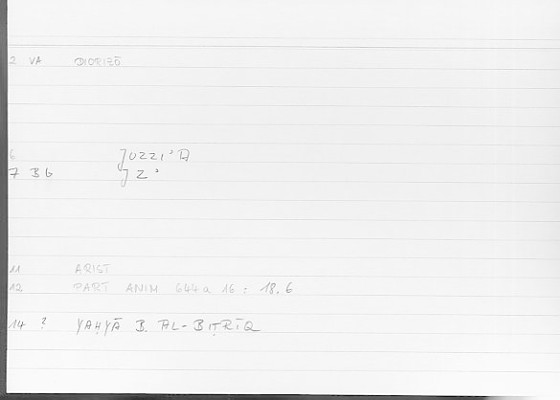 2 VA DIORIZŌ
6 JUZZI'A
7 Bb JZ'
11 ARIST
12 PART ANIM 644a 16 : 18.6
14 ? YAḤYĀ B. AL-BIṬRĪQ